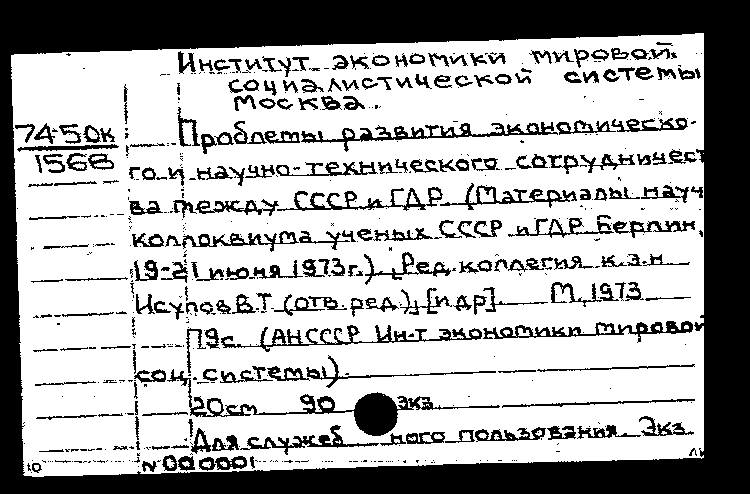 Институт экономики мировой
социалистической системы
Москва.
74-50к
1568
Проблемы развития экономическо-
го и научно-технического сотрудничест
ва между СССР и ГДР. (Материалы науч
коллоквиума ученых СССР и ГДР Берлин,
19-21 июня 1973г.). Ред. коллегия к.э.н
Исупов В.Т (отв. ред.), [и др]. М, 1973
79с. (АНСССР Ин-т экономики мировой
соц. системы).
20см 90 экз
Для служеб ного пользования. Экз
N 000001
10